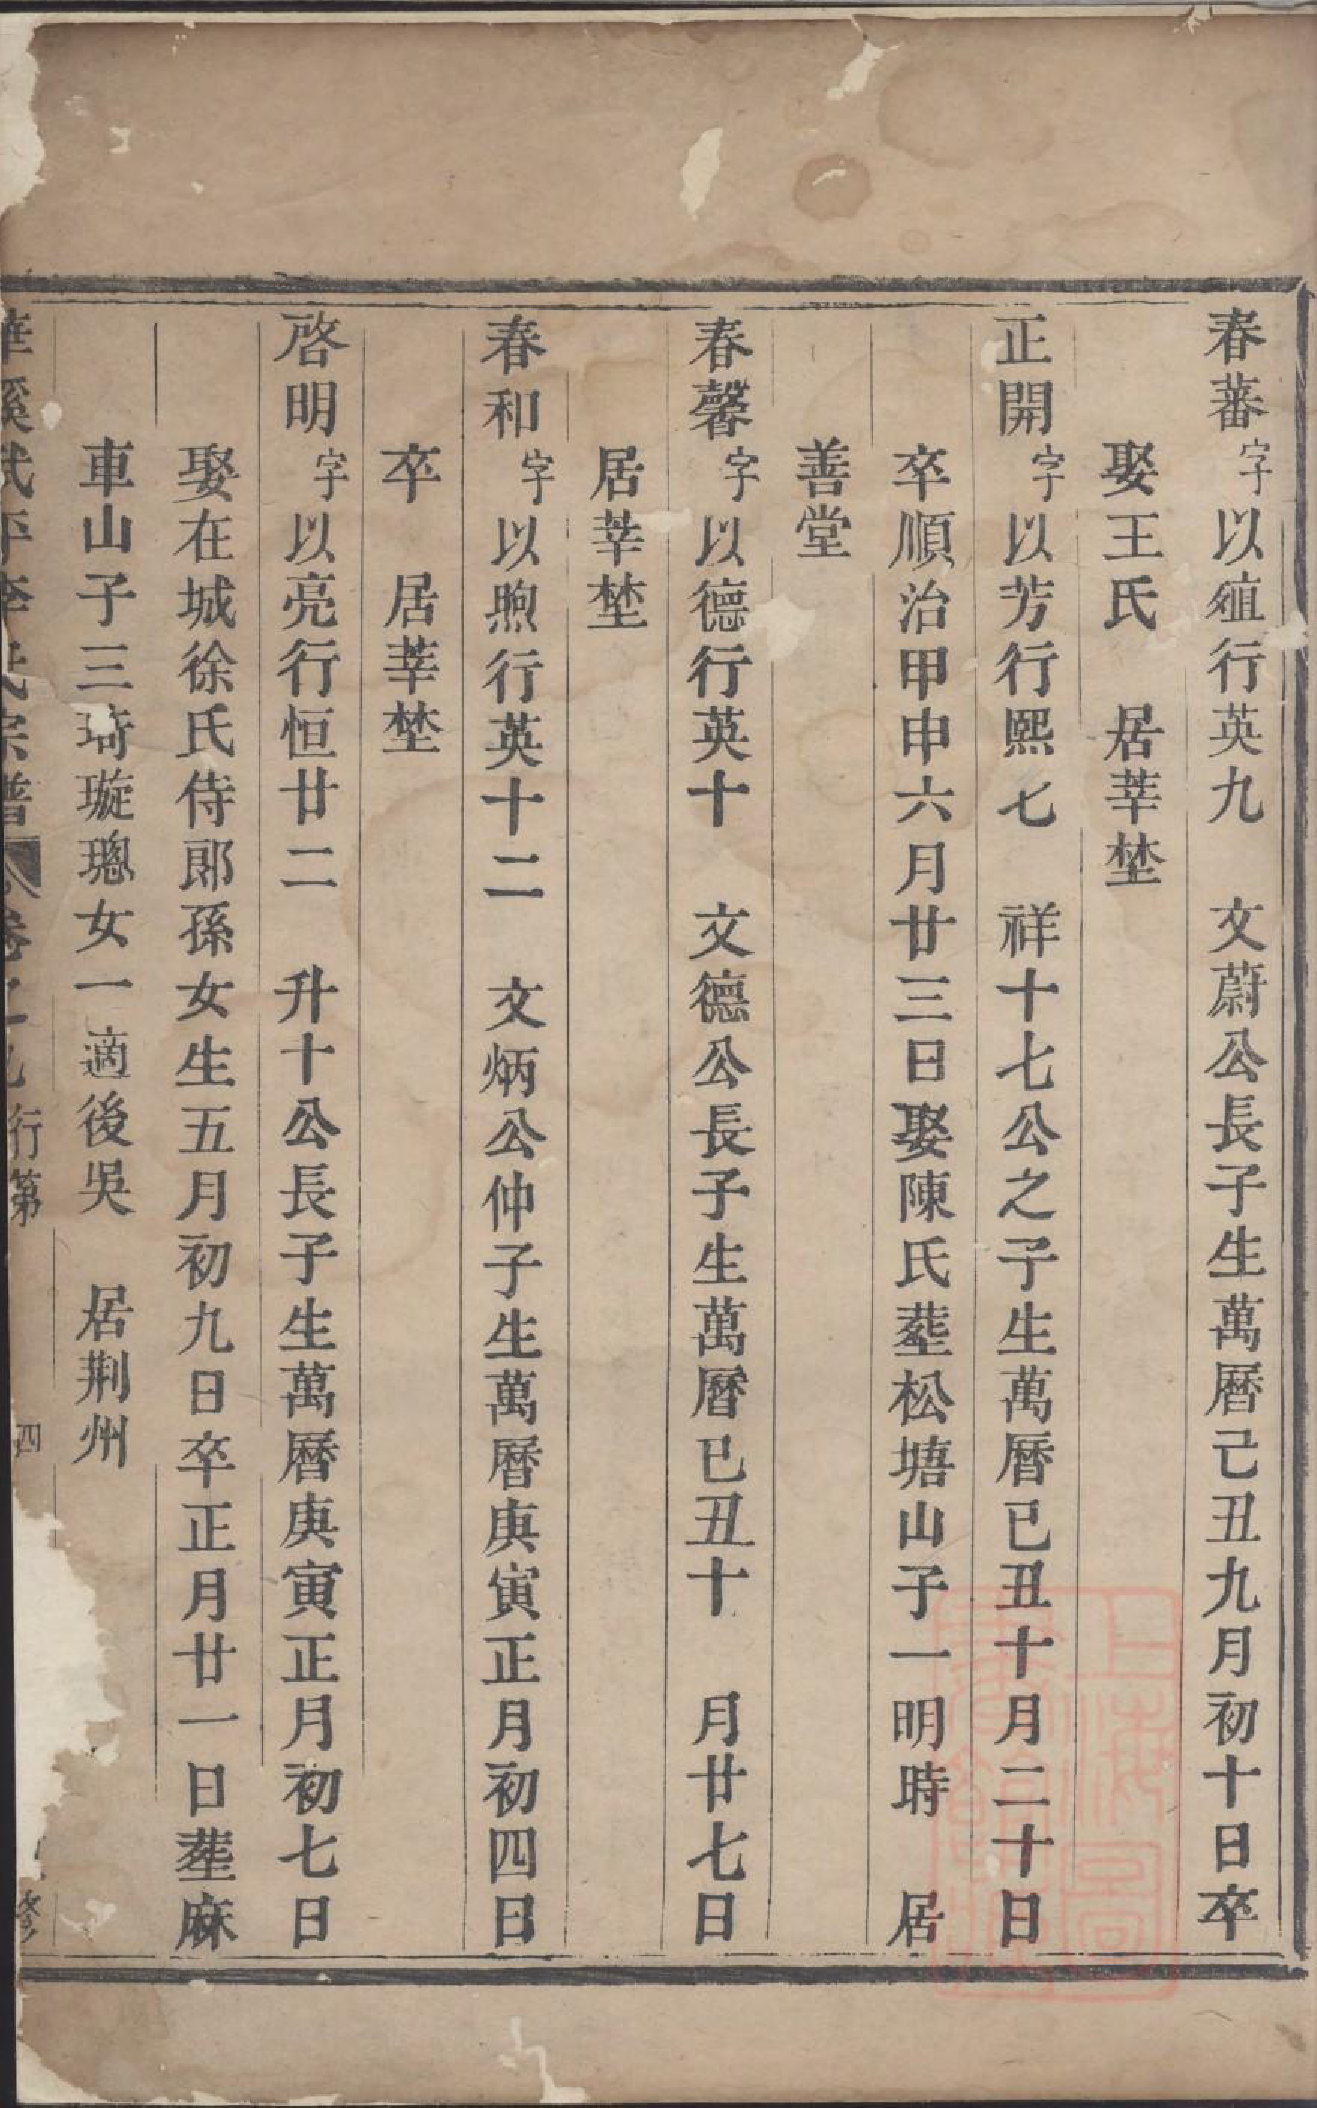 春蕃字以殖行英九　文蔚公長子生萬曆己丑九月初十日卒
娶王氏　居莘埜
正開字以芳行熙七　祥十七公之子生萬曆已丑十月二十日
卒順治甲申六月廿三日娶陳氏塟松塘山子一明時　居
善堂
春馨字以德行英十　文德公長子生萬曆已丑十　月廿七日
居莘埜
春和字以煦行英十二　文炳公仲子生萬曆庚寅正月初四日
卒　居莘埜
啓明字以亮行恒廿二　升十公長子生萬曆庚寅正月初七日
娶在城徐氏侍郎孫女生五月初九日卒正月廿一日塟麻
車山子三琦璇璁女一適後吳　居荆州
華溪武平李氏宗譜　卷之九　行第　四　修
上海圖書館藏